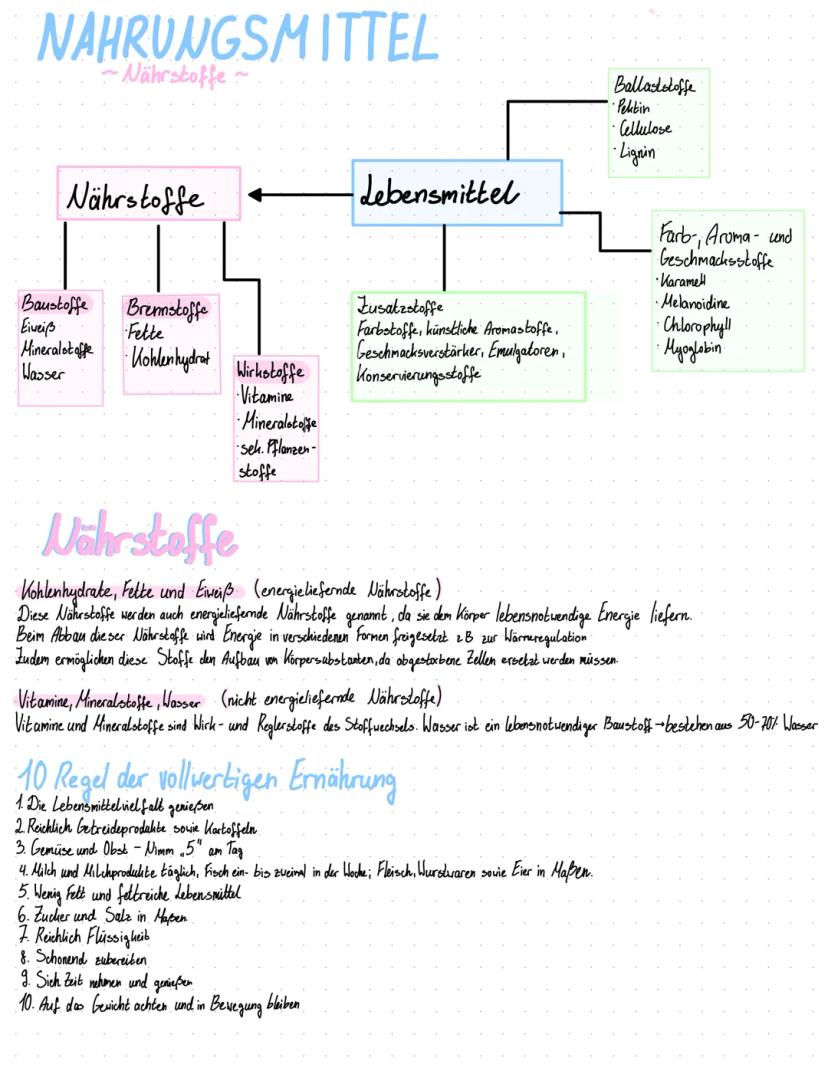 NAHRUNGSMITTEL
~ Nährstoffe ~
Ballaststoffe
· Pektin
· Cellulose
· Lignin
Nährstoffe
Lebensmittel
Farb-, Aroma- und
Geschmacksstoffe
· Karamell
· Melanoidine
· Chlorophyll
· Myoglobin
Baustoffe
Eiweiß
Mineralstoffe
Wasser
Brennstoffe
· Fette
· Kohlenhydrat
Wirkstoffe
· Vitamine
· Mineralstoffe
· sek. Pflanzen-
stoffe
Zusatzstoffe
Farbstoffe, künstliche Aromastoffe,
Geschmacksverstärker, Emulgatoren,
Konservierungsstoffe
Nährstoffe
Kohlenhydrate, Fette und Eiweiß (energieliefernde Nährstoffe)
Diese Nährstoffe werden auch energieliefernde Nährstoffe genannt, da sie dem Körper lebensnotwendige Energie liefern.
Beim Abbau dieser Nährstoffe wird Energie in verschiedenen Formen freigesetzt z.B zur Wärmeregulation
Zudem ermöglichen diese Stoffe den Aufbau von Körpersubstanzen, da abgestorbene Zellen ersetzt werden müssen.
Vitamine, Mineralstoffe, Wasser (nicht energieliefernde Nährstoffe)
Vitamine und Mineralstoffe sind Wirk- und Reglerstoffe des Stoffwechsels. Wasser ist ein lebensnotwendiger Baustoff → bestehen aus 50-70% Wasser
10 Regel der vollwertigen Ernährung
1. Die Lebensmittelvielfalt genießen
2. Reichlich Getreideprodukte sowie Kartoffeln
3. Gemüse und Obst - Nimm „5" am Tag
4. Milch und Milchprodukte täglich, Fisch ein- bis zweimal in der Woche; Fleisch, Wurstwaren sowie Eier in Maßen.
5. Wenig Fett und fettreiche Lebensmittel
6. Zucker und Salz in Maßen
7. Reichlich Flüssigkeit
8. Schonend zubereiten
9. Sich Zeit nehmen und genießen
10. Auf das Gewicht achten und in Bewegung bleiben